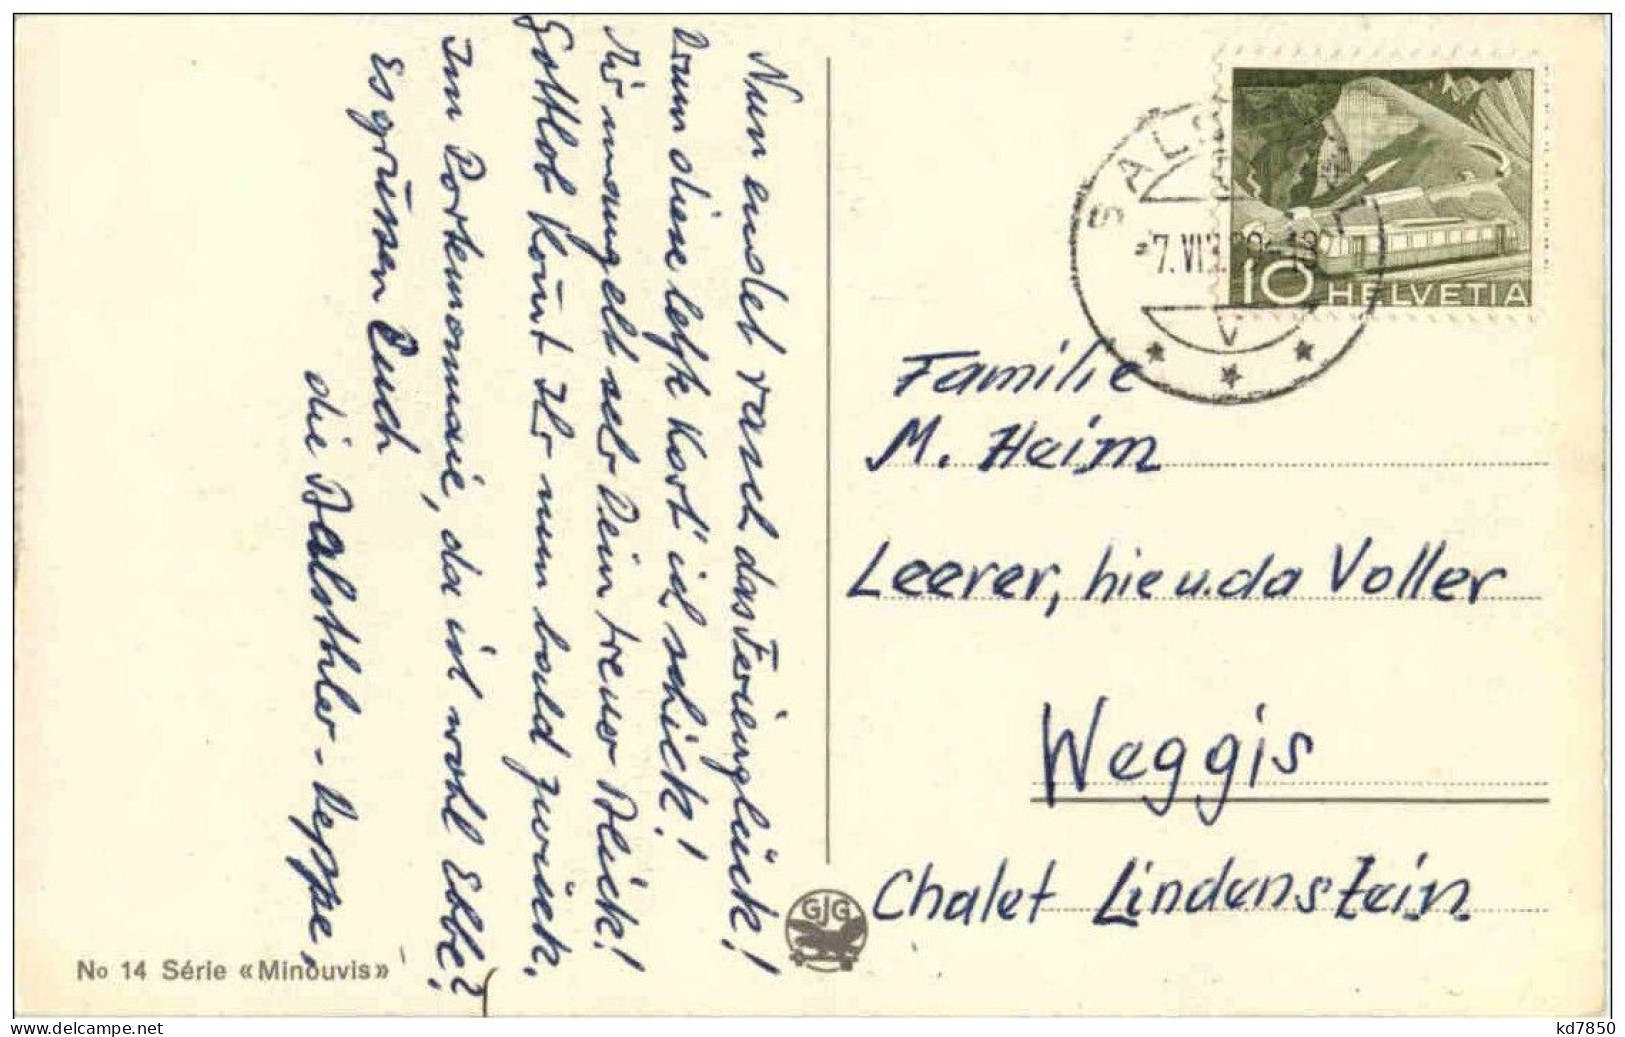 Nun endet rasch das Ferienglück!
Drum diese letzte Kart' ich schick!
Mir mangelt sehr Dein treuer Blick!
Gottlob kom̄t Ihr nun bald zurück.
Im Portemonnaie, da ist wohl Ebbe?
Es grüssen Euch
die Balsthler-Deppe.
No 14 Série «Minouvis»
GJG
BALSTHAL
10 HELVETIA
V
Familie
M. Heim
Leerer, hie u. da Voller
Weggis
Chalet Lindenstein
kd7850